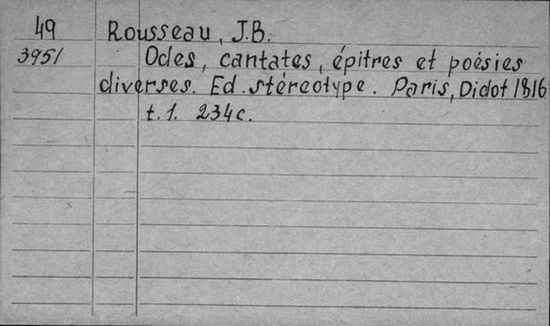 49 Rousseau, J.B.
3951 Odes, cantates, épitres et poésies
diverses. Ed. stéreotype. Paris, Didot 1816
t.1. 234c.